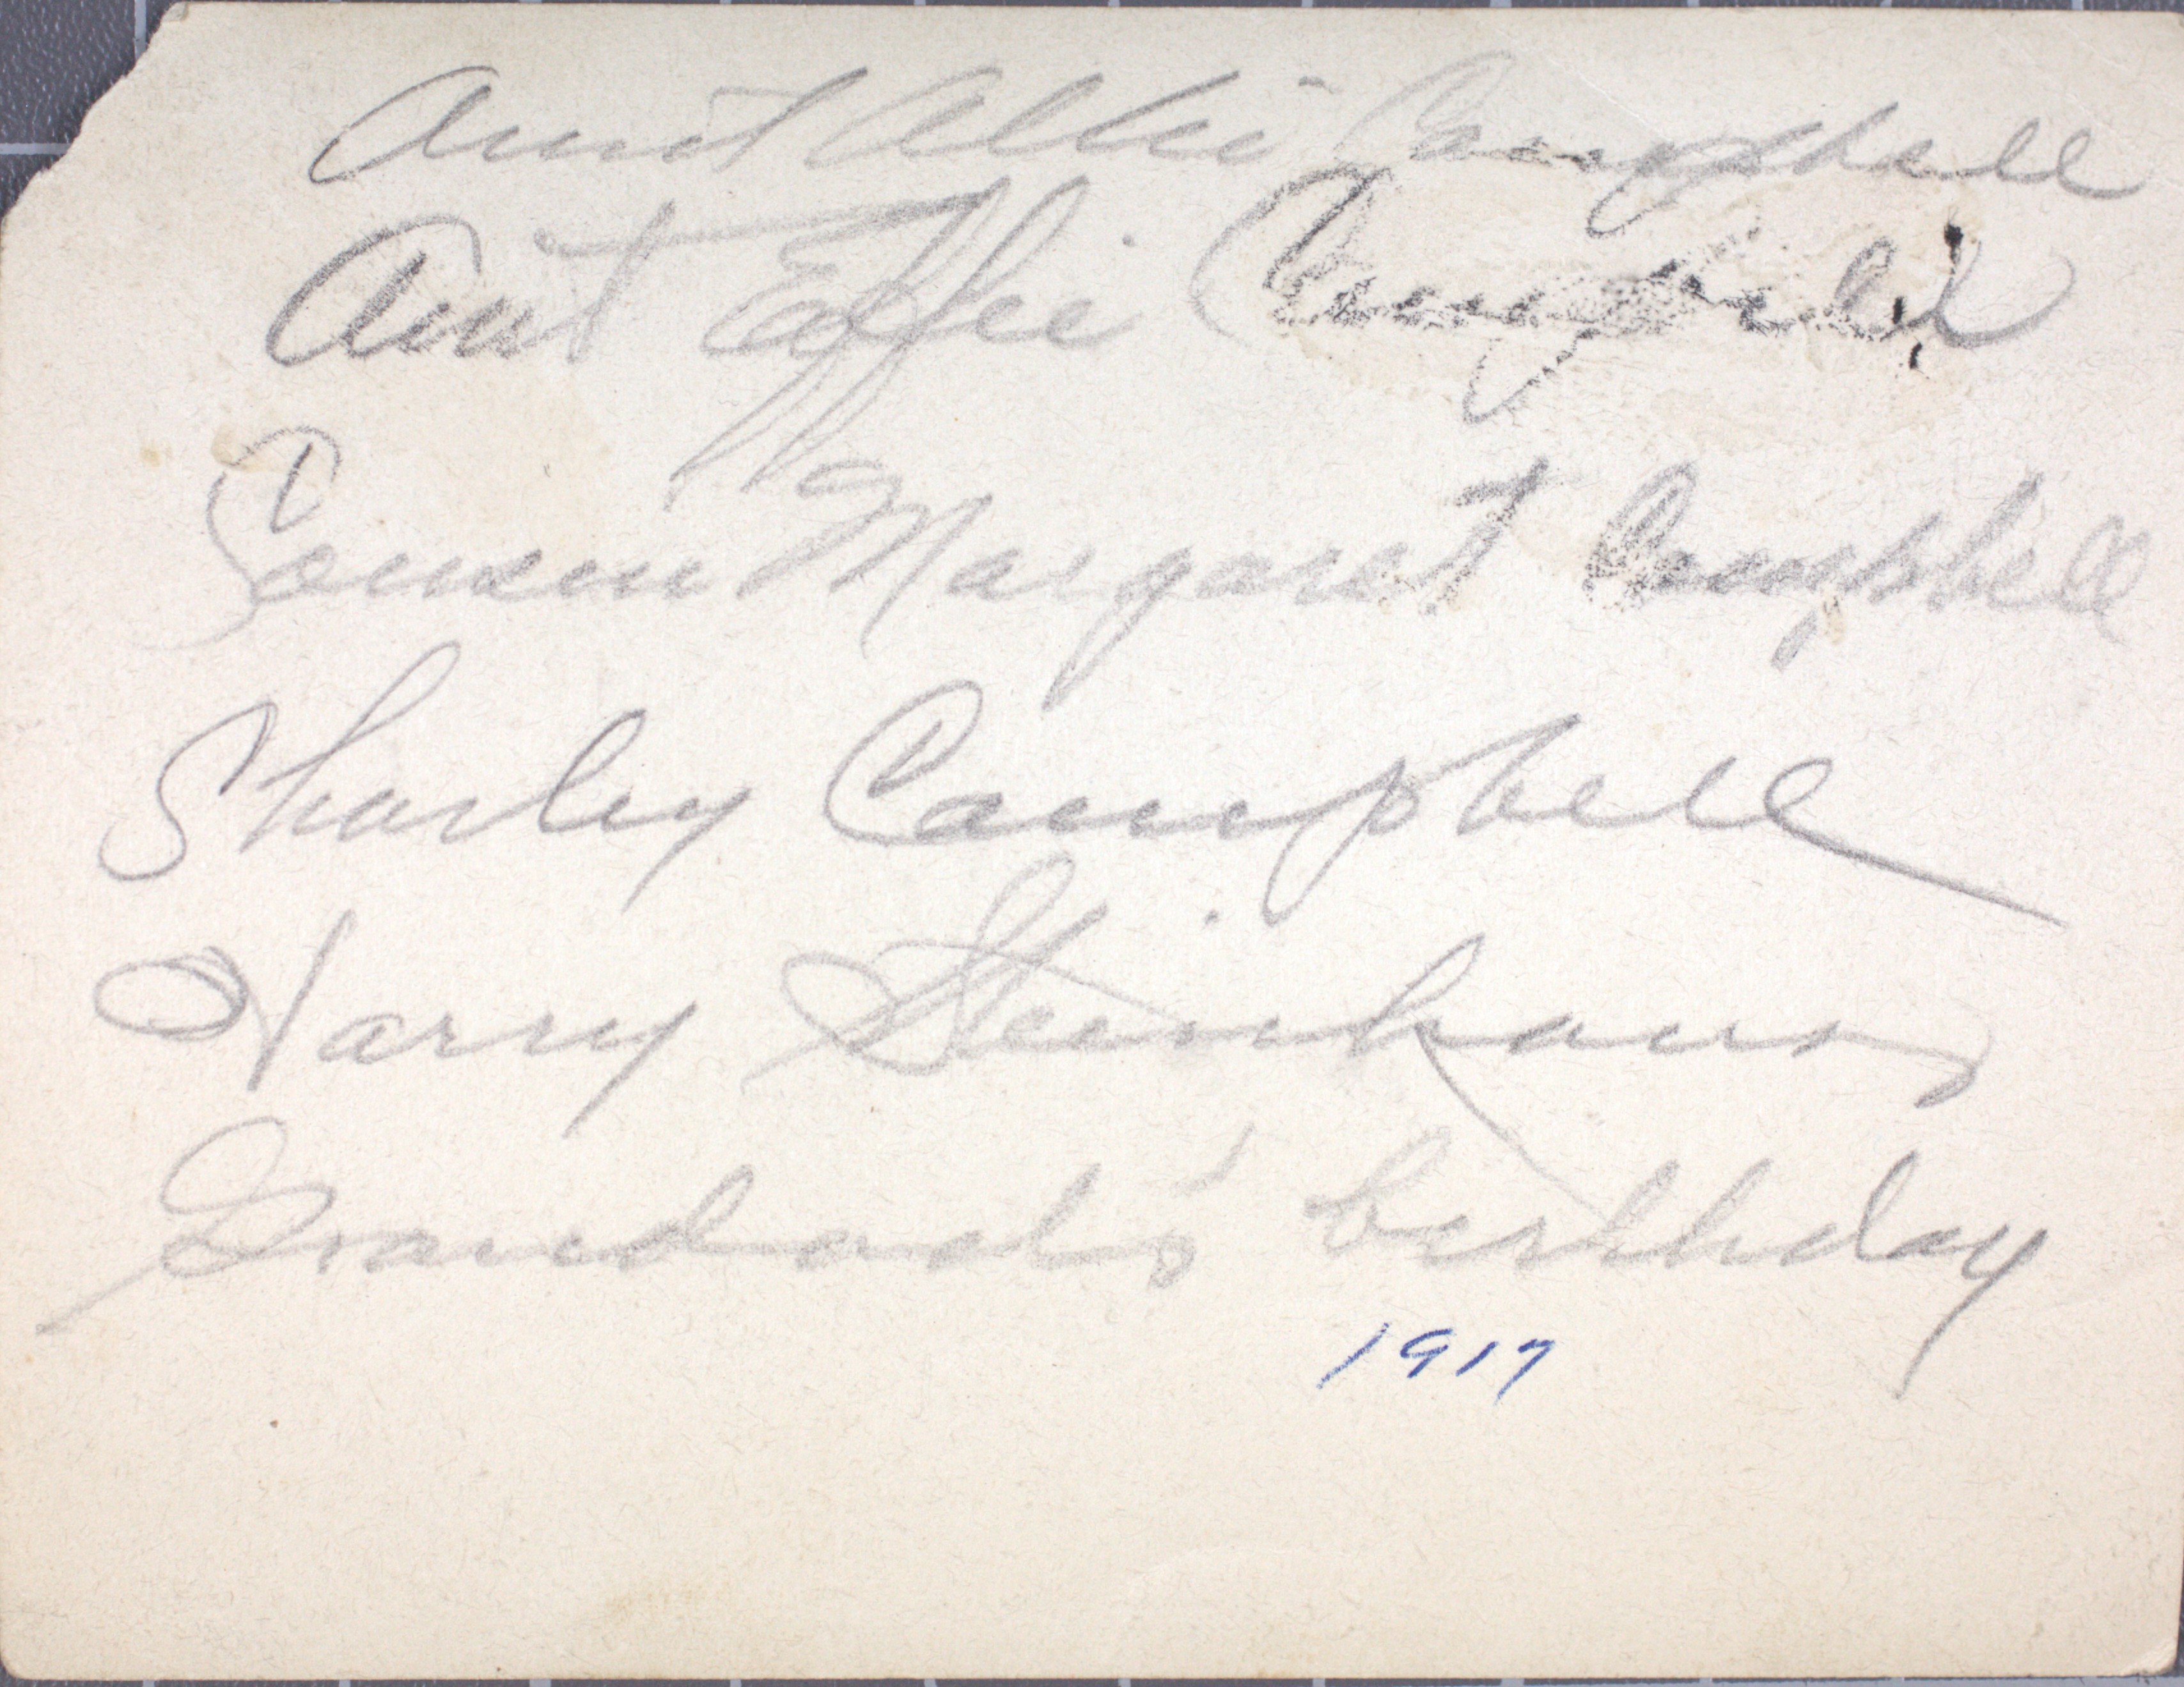 Aunt Allie Campbell
Aunt Effie Campbell
Cousin Margaret Campbell
Sharley Campbell
Harry Steinhaus
Grandads' birthday
1917